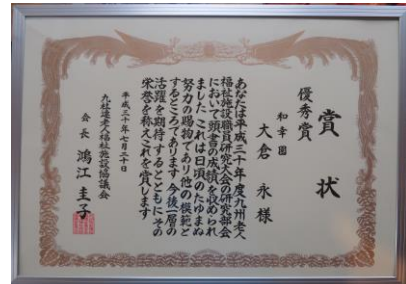 賞状
優秀賞
和幸園
大倉 永 様
あなたは平成三十年度九州老人
福祉施設職員研究大会の研究部会
において頭書の成績を収められ
ましたこれは日頃のたゆまぬ
努力の賜物であり他の模範と
するところであります今後一層の
活躍を期待するとともにその
栄誉を称えこれを賞します
平成三十年七月二十日
九社連老人福祉施設協議会
会長 鴻江圭子